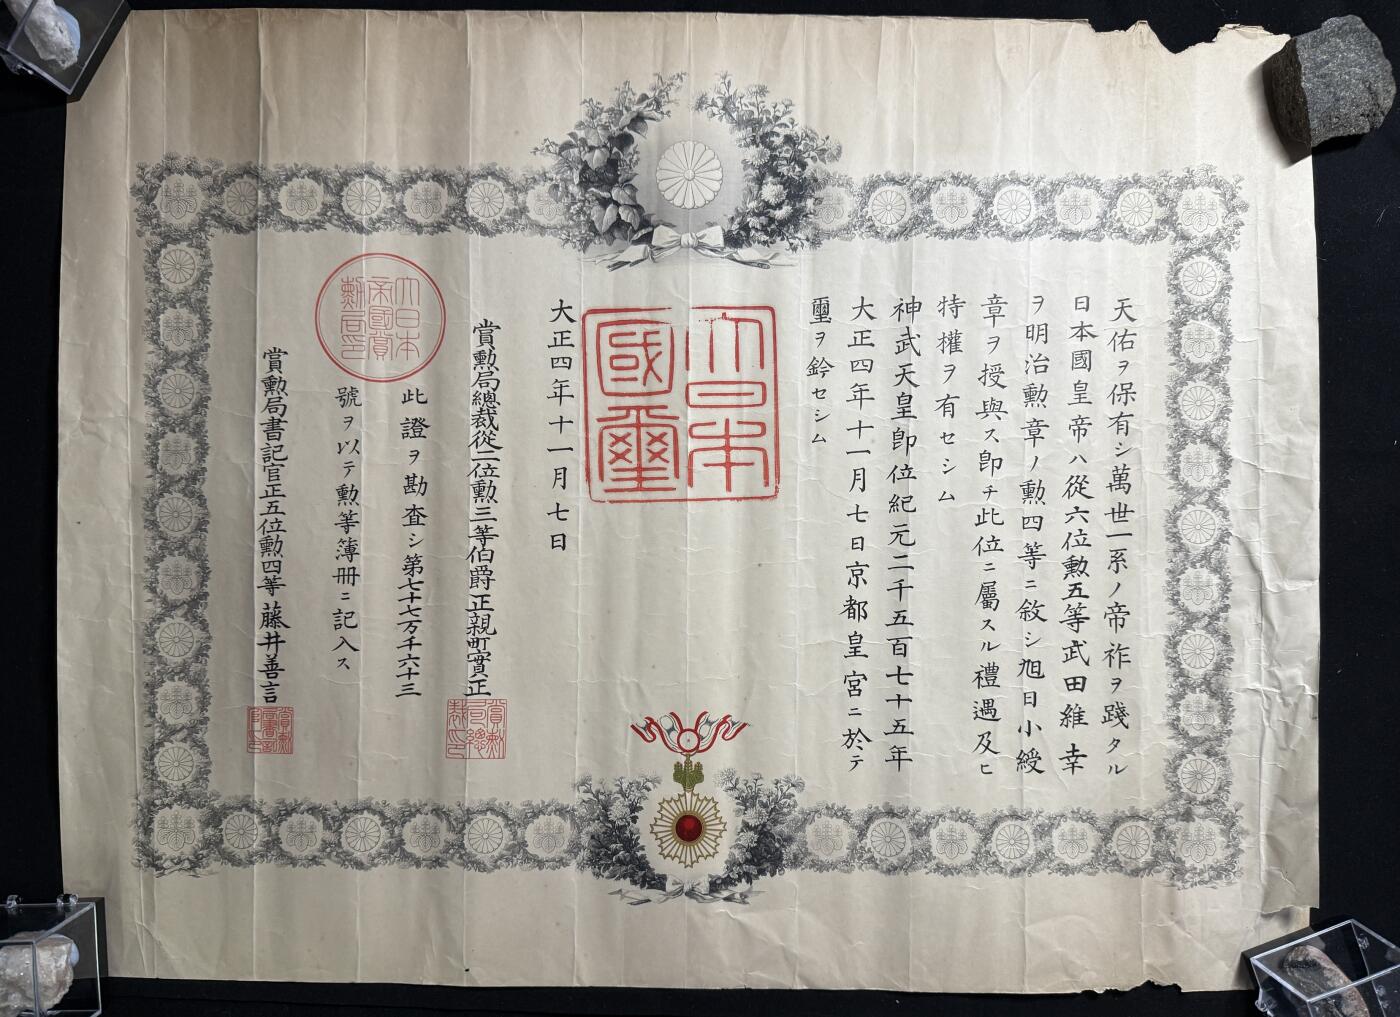 天佑ヲ保有シ萬世一系ノ帝祚ヲ踐タル
日本國皇帝ハ從六位勲五等武田維幸
ヲ明治勲章ノ勲四等ニ敘シ旭日小綬
章ヲ授與ス卽チ此位ニ屬スル禮遇及ヒ
特權ヲ有セシム
神武天皇卽位紀元二千五百七十五年
大正四年十一月七日京都皇宮ニ於テ
璽ヲ鈐セシム
大日本
國璽
大正四年十一月七日
賞勲局總裁從二位勲三等伯爵正親町實正
大日本
帝國賞
勲局印
此證ヲ勘査シ第七十七万千六十三
號ヲ以テ勲等簿冊ニ記入ス
賞勲局書記官正五位勲四等藤井善言